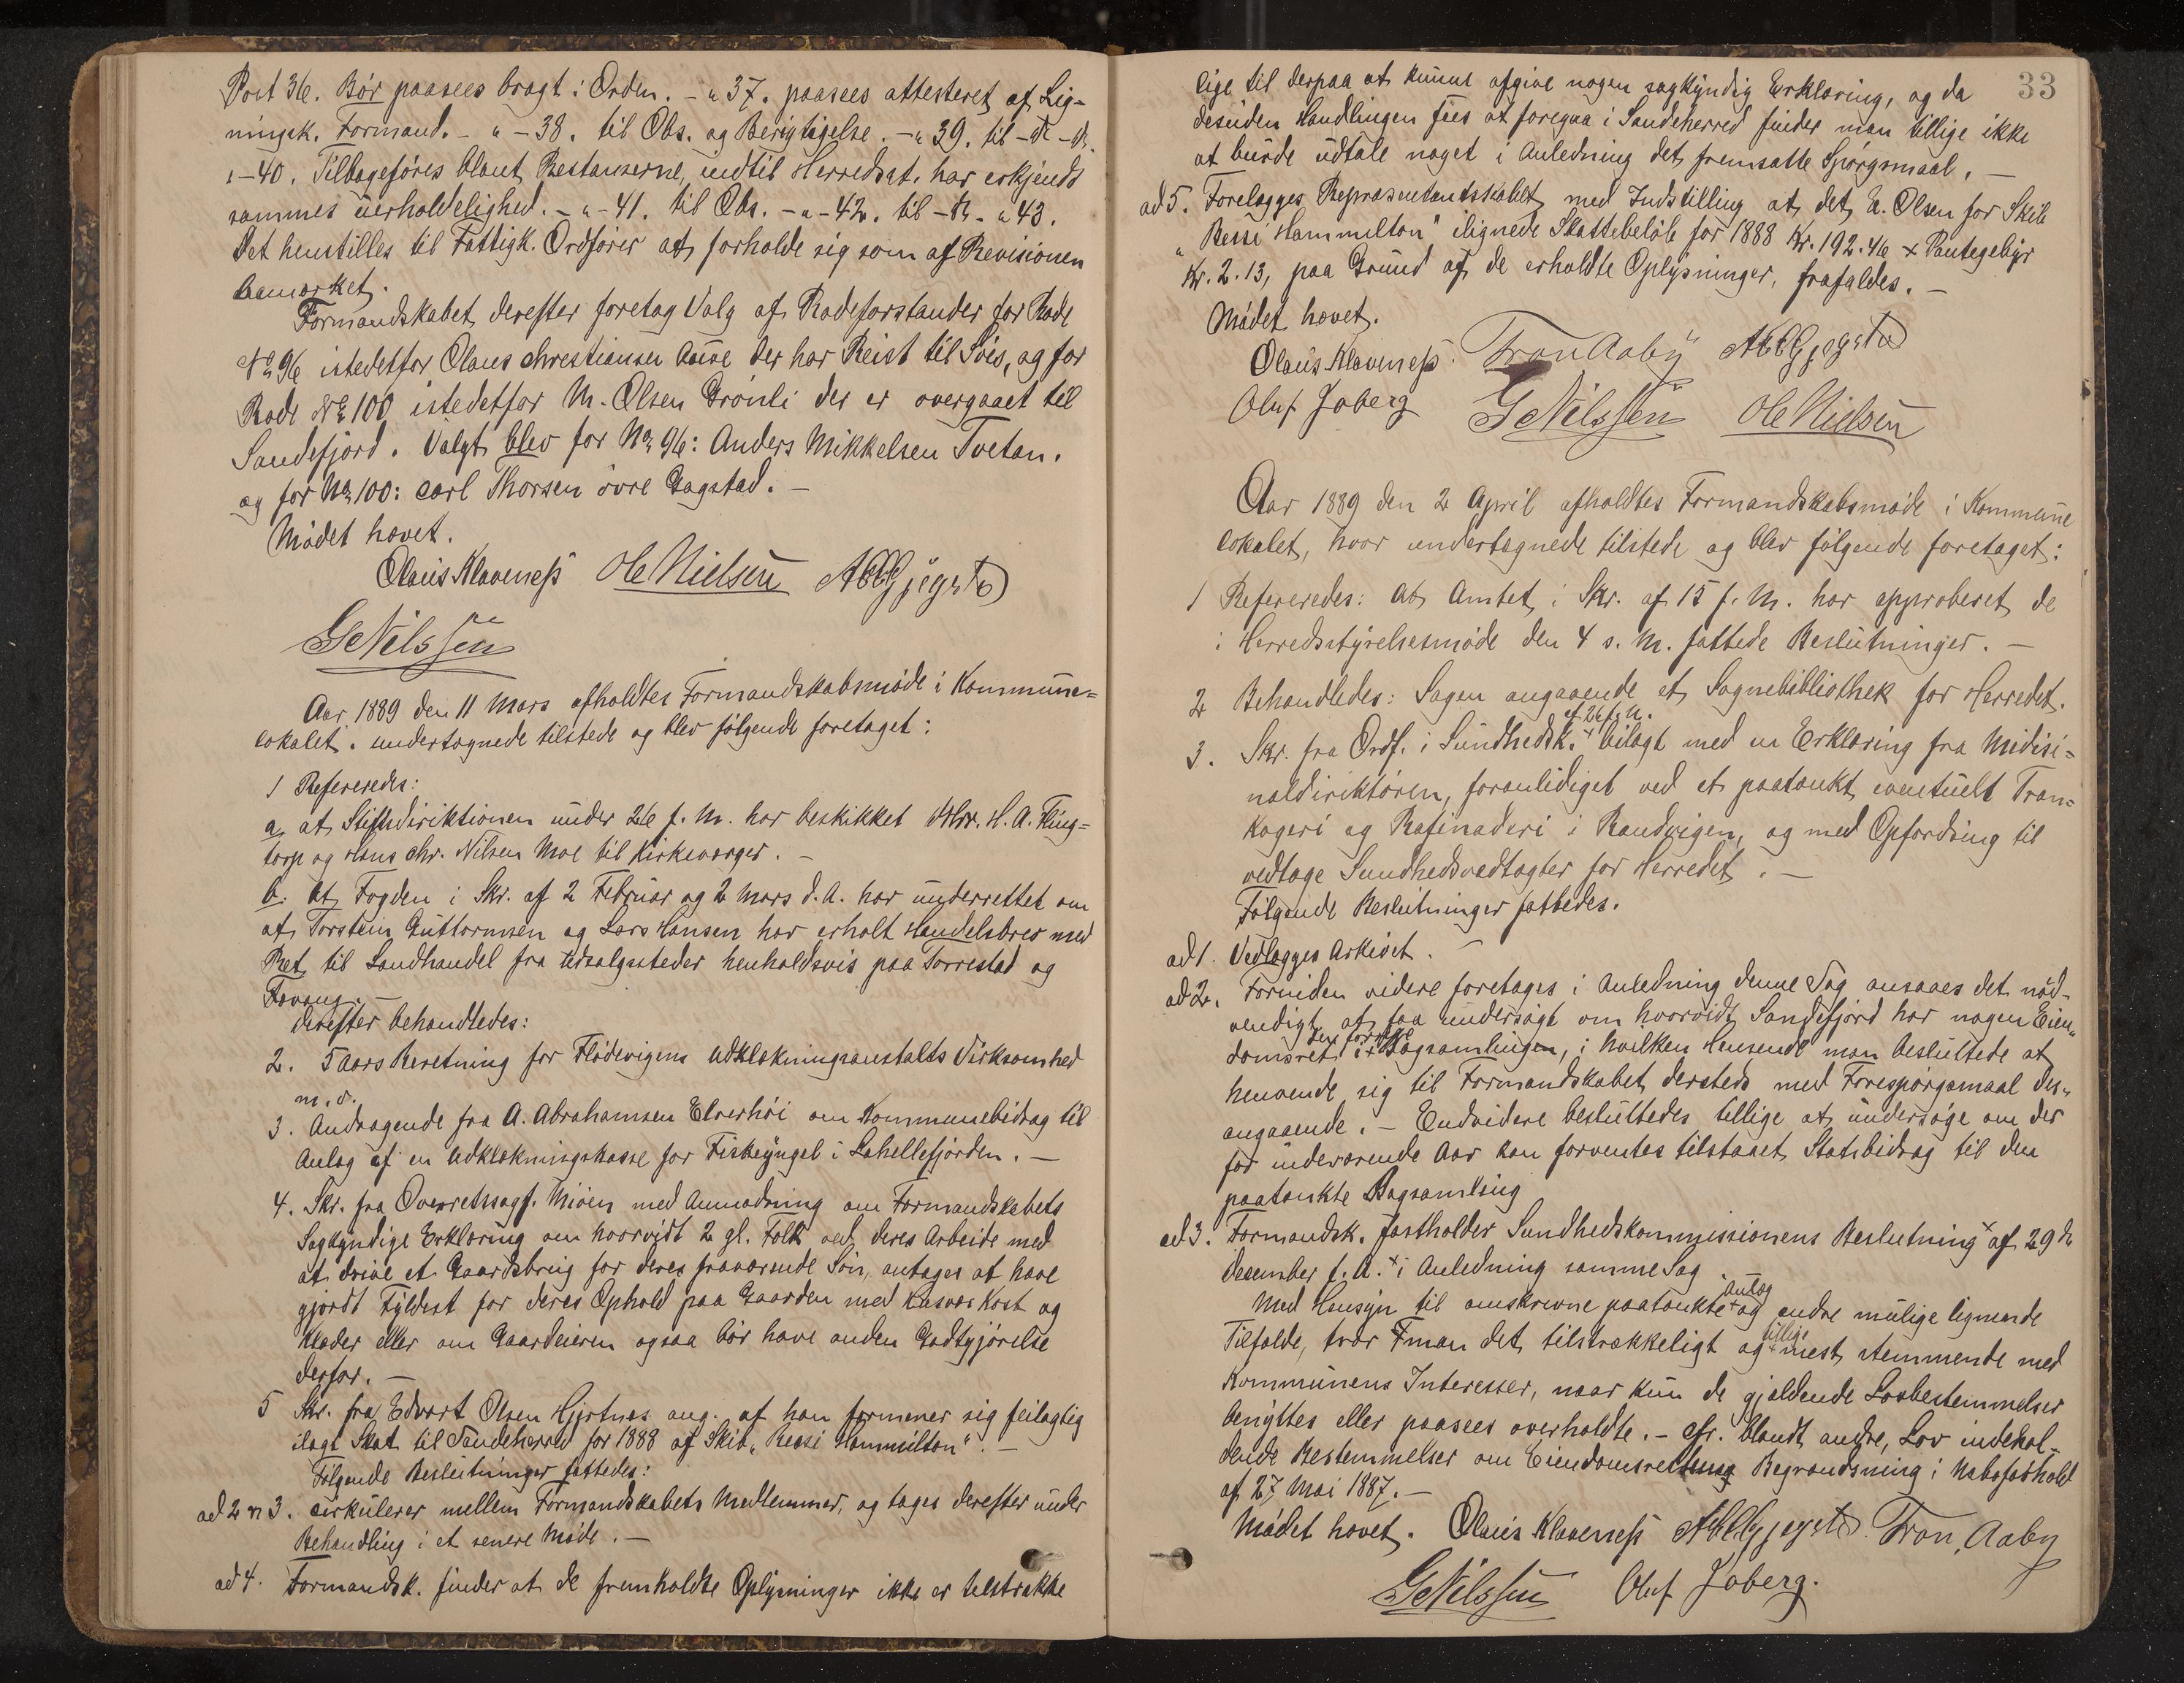 Post 36. Bør paasees bragt i Orden. - " 37. paasees attesteret af Lig-
ningsk. Formand. - " - 38. til Obs. og Berigtigelse. - " 39. til - D - D.
" - 40. Tilbageføres blant Restanserne, indtil Herredsst. har erkjendt
sammes uerholdelighed. - " - 41. til Obs. - " - 42. til - D. - " 43.
Det henstilles til Fattigk. Ordfører at forholde sig som af Revisionen
bemærket.
Formandskabet derefter foretog Valg af Rodeforstander for Rode
No 96 istedetfor Olaus Chrestiansen Aaive der har Reist til Svis, og for
Rode No 100 istedetfor M. Olsen Grønli der er overgaaet til
Sandefjord. Valgt blev for No 96: Anders Mikkelsen Tvetan.
og for No 100: Carl Thorsen øvre Gogstad. -
Mødet hævet.
Olaus Klaveness Ole Nielsen A Gjegstø
G Nilssen
Aar 1889 den 11 Mars afholdtes Formandskabsmøde i Kommune=
lokalet. undertegnede tilstede og blev følgende foretaget:
1 Refereredes:
a, at Stiftsdiriktionen under 26 f. M. har beskikket Hrr. H. A. Fling=
torp og Hans Chr. Nilsen Moe til Kirkeværger. -
b. At Fogden i Skr. af 2 Februar og 2 Mars d. A. har underrettet om
at Torstein Guttormsen og Lars Hansen har erholt Handelsbrev med
Ret til Landhandel fra Udsalgssteder henholdsvis paa Torrestad og
Fevang. -
derefter behandledes:
2. 5 Aars Beretning for Flødevigens Udklækningsanstalts Virksomhed
m. v.
3. Andragende fra A. Abrahamsen Elverhøi om Kommunebidrag til
Anlæg af en Udklækningskasse for Fiskeyngel i Lahellefjorden. -
4. Skr. fra Overretssagf. Miøen med Anmodning om Formandskabets
Sagkyndige Erklæring om hvorvidt 2 gl. Folk ved deres Arbeide med
at drive et Gaardsbrug for deres fraværende Søn, antages at have
gjordt Fyldest for deres Ophold paa Gaarden med Husvær Kost og
Klæder eller om Gaardeieren ogsaa bør have anden Godtgjørelse
derfor. -
5 Skr. fra Edvart Olsen Hjertnes ang. at han formener sig feilagtig
ilagt Skat til Sandeherred for 1888 af Skib "Bessi Hammilton". -
Følgende Beslutninger fattedes:
ad 2 n 3. cirkulerer mellem Formandskabets Medlemmer, og tages derefter under
Behandling i et senere Møde. -
ad 4. Formandsk. finder at de fremholdte Oplysninger ikke er tilstrække
33
lige til derpaa at kunne afgive nogen sagkyndig Erklæring, og da
desuden Handlingen sees at foregaa i Sandeherred finder man tillige ikke
at burde udtale noget i Anledning det fremsatte Spørgsmaal. -
ad 5. Forelægges Repræsentantskabet med Indstilling at det E. Olsen for Skib
"Bessi Hammelton" ilignede Skattebeløb for 1888 Kr. 192.46 + Pantegebyr
Kr. 2.13, paa Grund af de erholdte Oplysninger, frafaldes. -
Mødet hævet.
Olaus Klaveness. Tron Aaby A Gjegstø
Oluf Joberg G Nilssen Ole Nielsen
Aar 1889 den 2 April afholdtes Formandskabsmøde i Kommune
lokalet, hvor undertegnede tilstede og blev følgende foretaget:
1 Refereredes: At Amtet i Skr. af 15 f. M. har approberet de
i Herredsstyrelsesmøde den 4 s. M. fattede Beslutninger. -
2 Behandledes: Sagen angaaende et Sognebibliothek for Herredet.
af 26 f. M.
3. Skr. fra Ordf. i Sundhedsk. + bilagt med en Erklæring fra Midisi=
naldiriktøren, foranlediget ved et paatænkt eventuelt Tran=
kogeri og Rafinaderi i Randvigen, og med Opfordring til
vedtage Sundhedsvedtægter for Herredet. -
Følgende Beslutninger fattedes.
ad 1. Vedlægges Arkivet. -
ad 2. Forinden videre foretages i Anledning denne Sag ansaaes det nød-
vendigt at faa undersøgt om hvorvidt Sandefjord har nogen Eien-
domsret i + Bogsamlingen, i hvilken Henseende man besluttede at
henvende sig til Formandskabet dersteds med Forespørgsmaal des-
angaaende. - Endvidere besluttedes tillige at undersøge om der
for indeværende Aar kan forventes tilstaaet Statsbidrag til den
paatænkte Bogsamling
ad 3. Formandsk. fastholder Sundhedskommissionens Beslutning + af 29de
December f. A. + i Anledning samme Sag.
Anlæg
Med Hensyn til omskrevne paatænkte + og andre mulige lignende
tillige
Tilfælde, tror Fman det tilstrækkeligt og + mest stemmende med
Kommunens Interesser, naar kun de gjældende Lovbestemmelser
benyttes eller paasees overholdte. - Cfr. blandt andre, Lov indehol-
dende Bestemmelser om Eiendomsrettens Begrændsning i Naboforhold
af 27 Mai 1887. -
Mødet hævet. Olaus Klaveness A Gjegstø. Tron Aaby
G Nilssen Oluf Joberg.